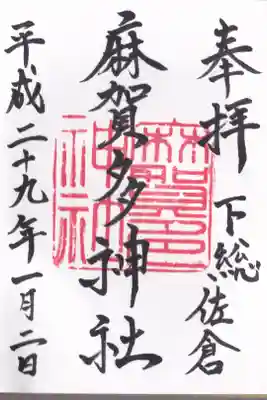 奉拝 下総佐倉
麻賀多神社
平成二十九年一月二日